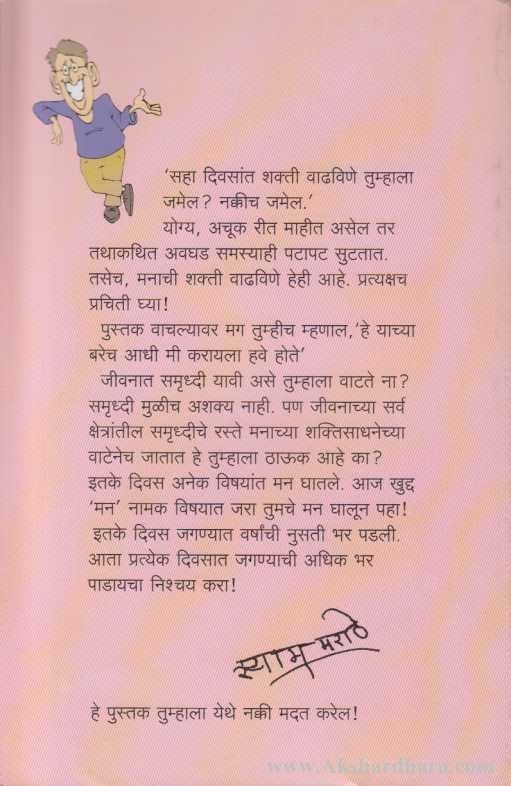 'सहा दिवसांत शक्ती वाढविणे तुम्हाला
जमेल? नक्कीच जमेल.'
योग्य, अचूक रीत माहीत असेल तर
तथाकथित अवघड समस्याही पटापट सुटतात.
तसेच, मनाची शक्ती वाढविणे हेही आहे. प्रत्यक्षच
प्रचिती घ्या!
पुस्तक वाचल्यावर मग तुम्हीच म्हणाल,'हे याच्या
बरेच आधी मी करायला हवे होते'
जीवनात समृध्दी यावी असे तुम्हाला वाटते ना?
समृध्दी मुळीच अशक्य नाही. पण जीवनाच्या सर्व
क्षेत्रांतील समृध्दीचे रस्ते मनाच्या शक्तिसाधनेच्या
वाटेनेच जातात हे तुम्हाला ठाऊक आहे का?
इतके दिवस अनेक विषयांत मन घातले. आज खुद्द
'मन' नामक विषयात जरा तुमचे मन घालून पहा!
इतके दिवस जगण्यात वर्षांची नुसती भर पडली.
आता प्रत्येक दिवसात जगण्याची अधिक भर
पाडायचा निश्चय करा!
श्याम मराठे
हे पुस्तक तुम्हाला येथे नक्की मदत करेल!
www.Akshardhara.com